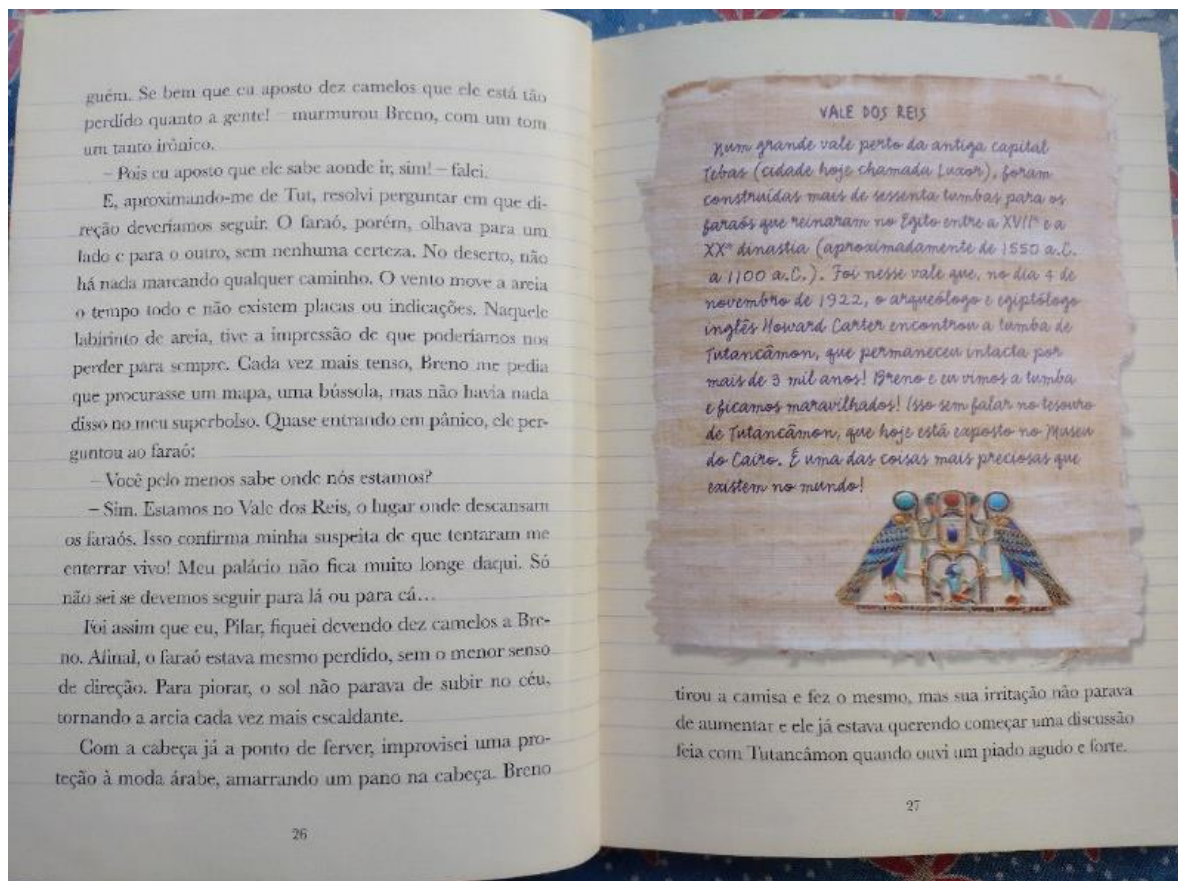 guém. Se bem que eu aposto dez camelos que ele está tão
perdido quanto a gente! – murmurou Breno, com um tom
um tanto irônico.
– Pois eu aposto que ele sabe aonde ir, sim! – falei.
E, aproximando-me de Tut, resolvi perguntar em que di-
reção deveríamos seguir. O faraó, porém, olhava para um
lado e para o outro, sem nenhuma certeza. No deserto, não
há nada marcando qualquer caminho. O vento move a areia
o tempo todo e não existem placas ou indicações. Naquele
labirinto de areia, tive a impressão de que poderíamos nos
perder para sempre. Cada vez mais tenso, Breno me pedia
que procurasse um mapa, uma bússola, mas não havia nada
disso no meu superbolso. Quase entrando em pânico, ele per-
guntou ao faraó:
– Você pelo menos sabe onde nós estamos?
– Sim. Estamos no Vale dos Reis, o lugar onde descansam
os faraós. Isso confirma minha suspeita de que tentaram me
enterrar vivo! Meu palácio não fica muito longe daqui. Só
não sei se devemos seguir para lá ou para cá…
Foi assim que eu, Pilar, fiquei devendo dez camelos a Bre-
no. Afinal, o faraó estava mesmo perdido, sem o menor senso
de direção. Para piorar, o sol não parava de subir no céu,
tornando a areia cada vez mais escaldante.
Com a cabeça já a ponto de ferver, improvisei uma pro-
teção à moda árabe, amarrando um pano na cabeça. Breno
26
VALE DOS REIS
Num grande vale perto da antiga capital
Tebas (cidade hoje chamada Luxor), foram
construídas mais de sessenta tumbas para os
faraós que reinaram no Egito entre a XVIIª e a
XXª dinastia (aproximadamente de 1550 a.C.
a 1100 a.C.). Foi nesse vale que, no dia 4 de
novembro de 1922, o arqueólogo e egiptólogo
inglês Howard Carter encontrou a tumba de
Tutancâmon, que permaneceu intacta por
mais de 3 mil anos! Breno e eu vimos a tumba
e ficamos maravilhados! Isso sem falar no tesouro
de Tutancâmon, que hoje está exposto no Museu
do Cairo. É uma das coisas mais preciosas que
existem no mundo!
tirou a camisa e fez o mesmo, mas sua irritação não parava
de aumentar e ele já estava querendo começar uma discussão
feia com Tutancâmon quando ouvi um piado agudo e forte.
27